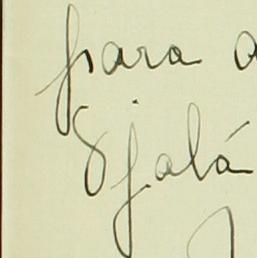 para a
Djalá